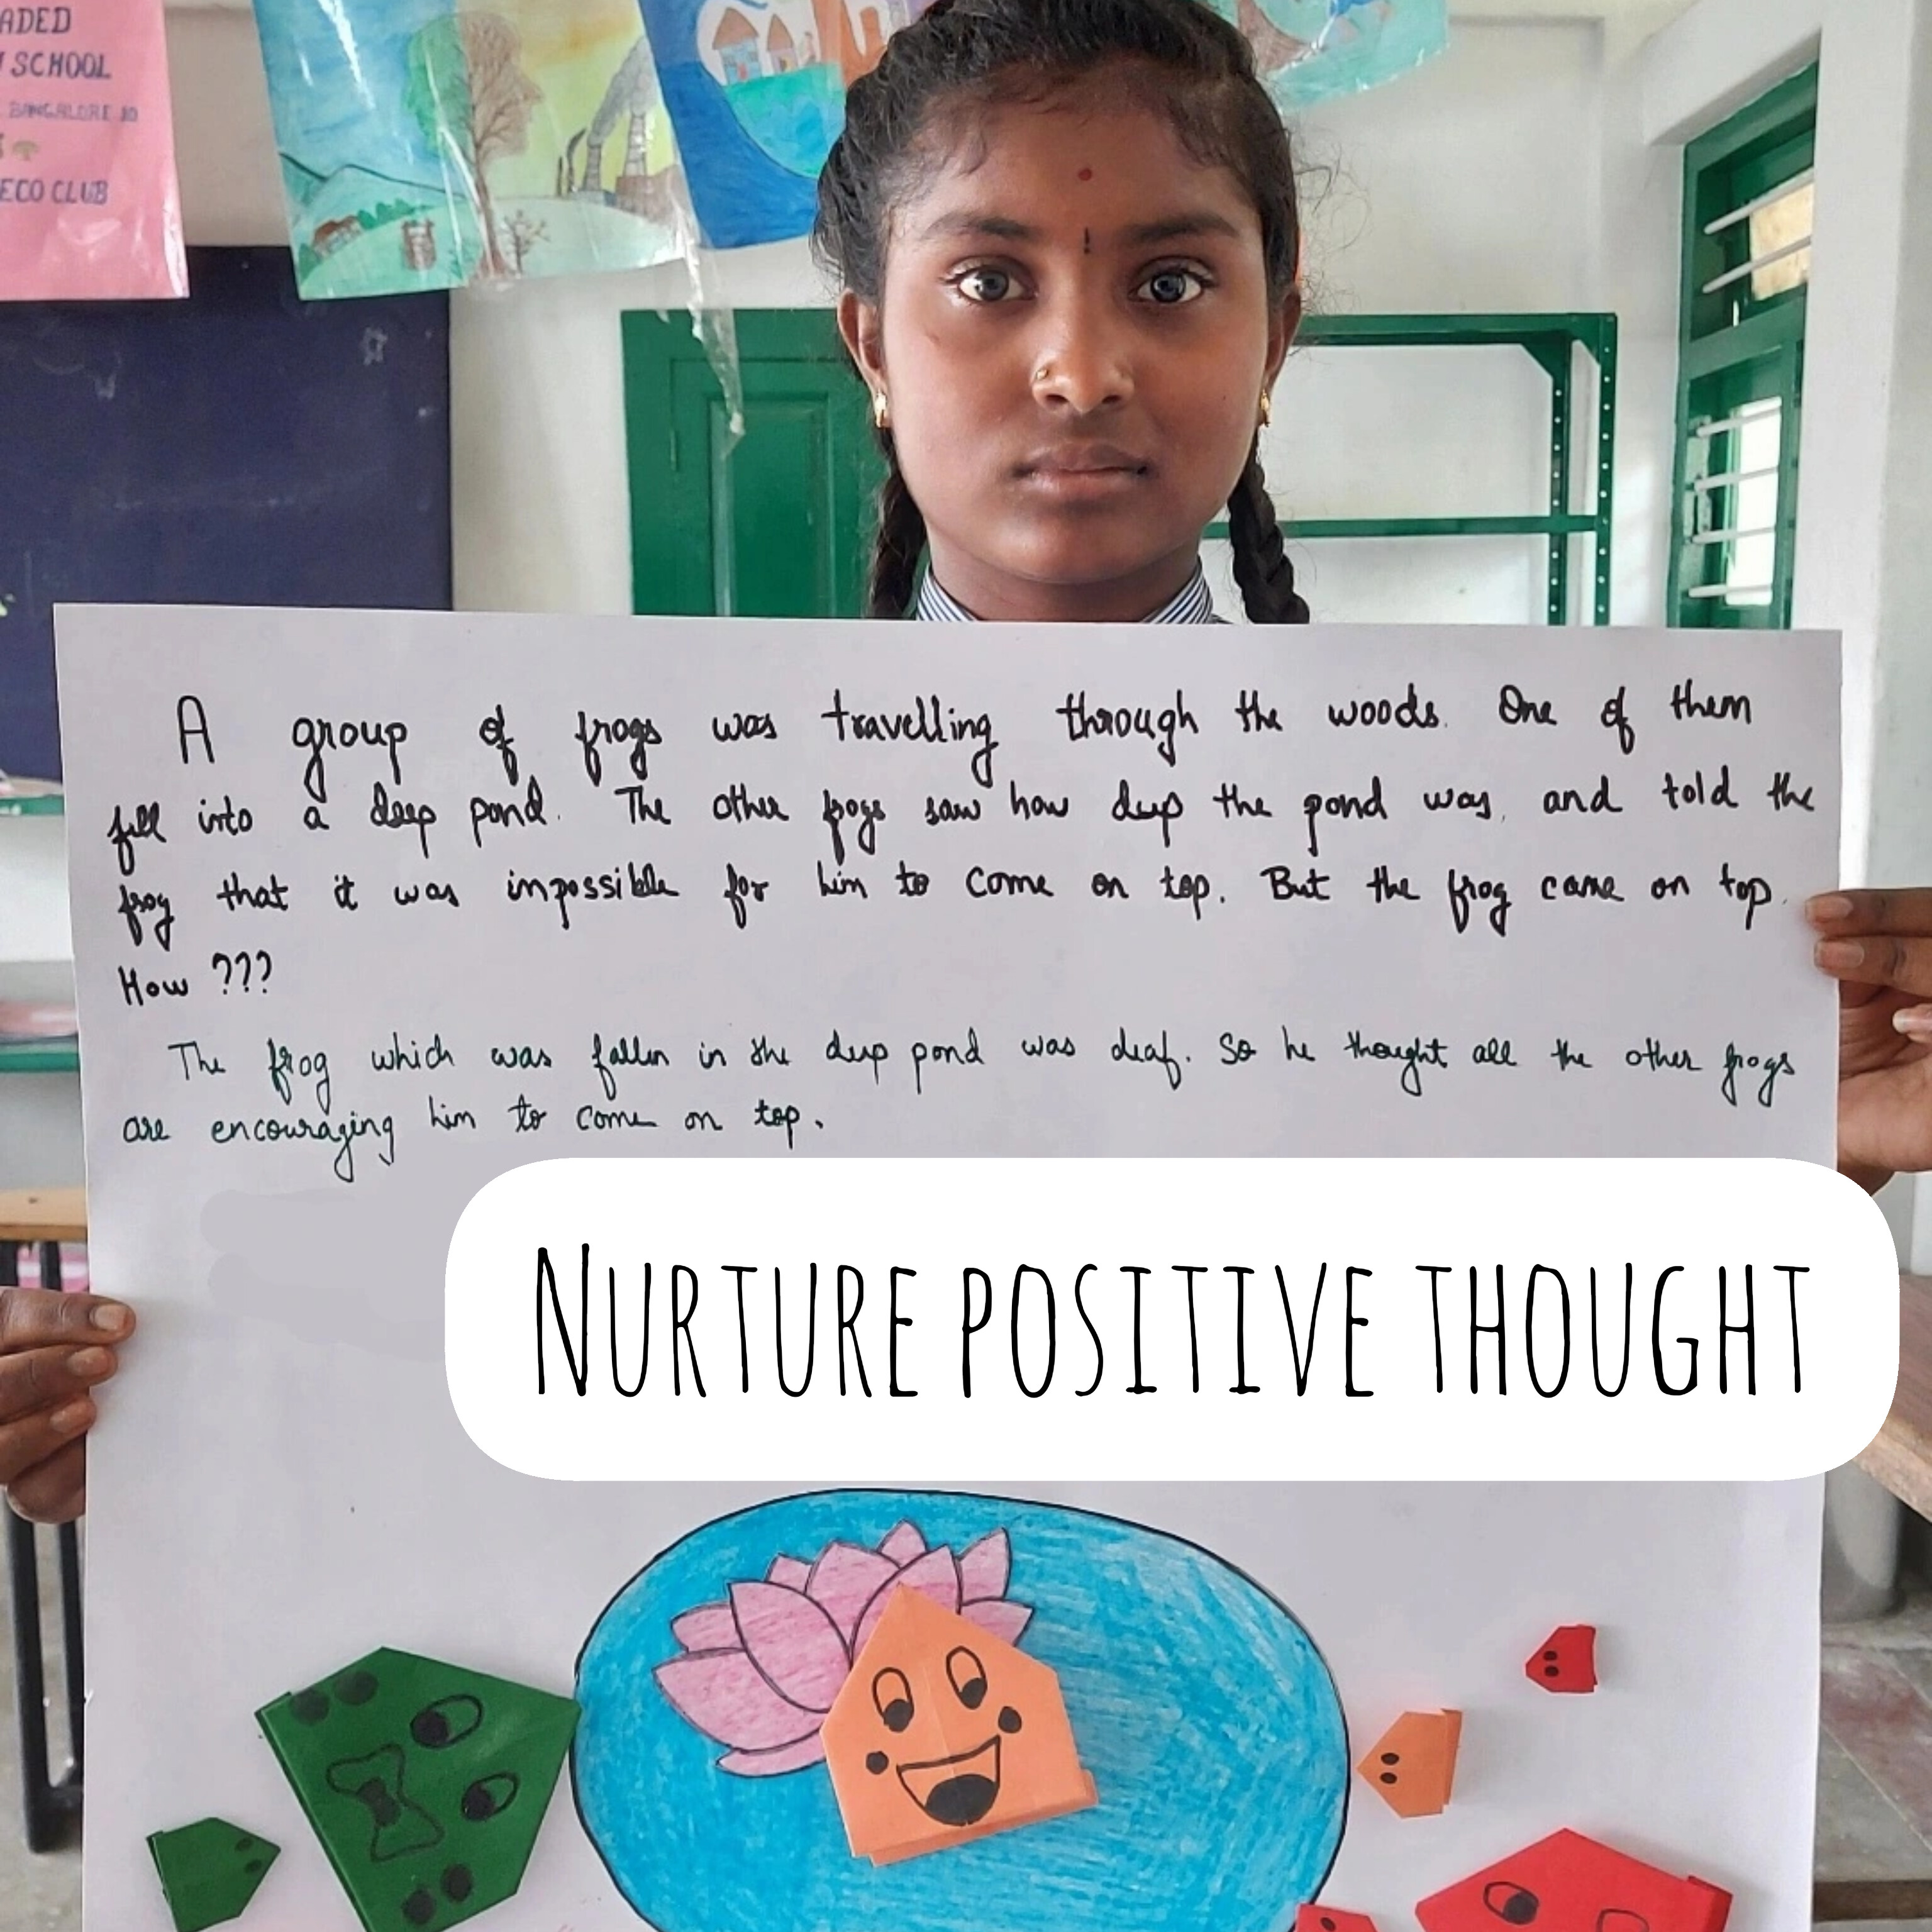 ADED
SCHOOL
BANGALORE 10
ECO CLUB
A group of frogs was travelling through the woods. One of them
fell into a deep pond. The other frogs saw how deep the pond was, and told the
frog that it was impossible for him to come on top. But the frog came on top.
How ???
The frog which was fallen in the deep pond was deaf. So he thought all the other frogs
are encouraging him to come on top.
NURTURE POSITIVE THOUGHT